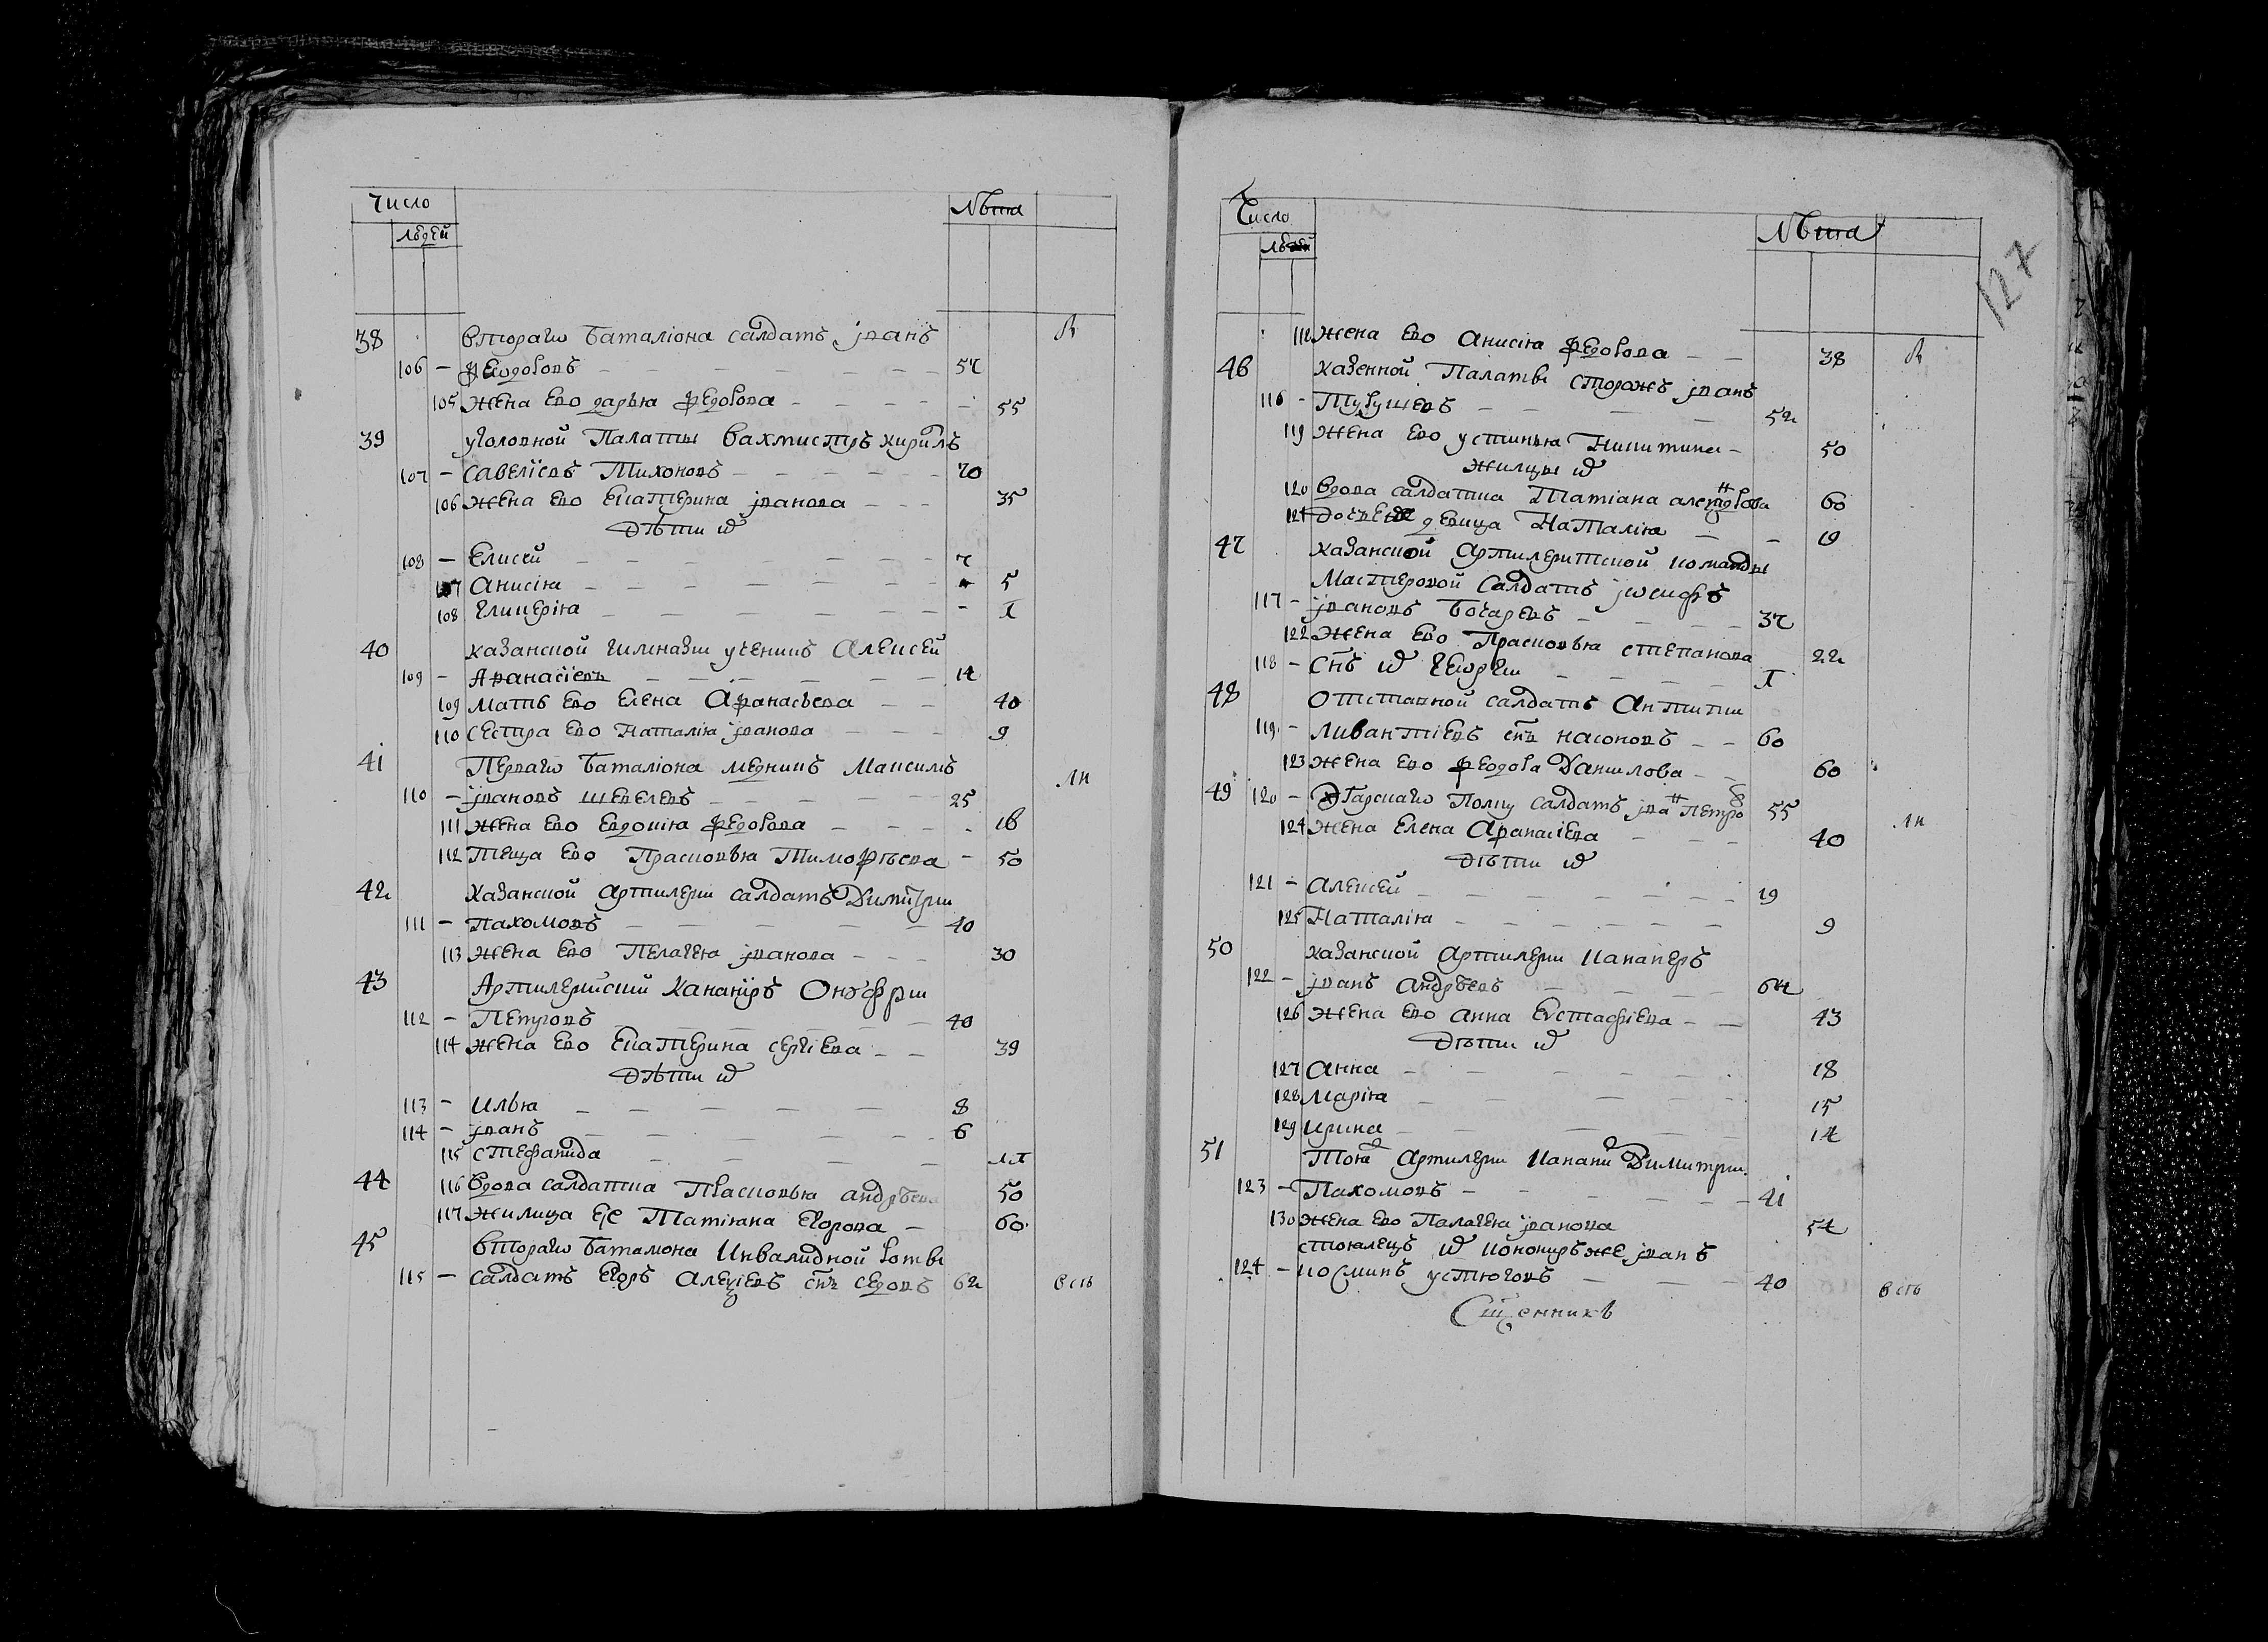 Число
людей
Лѣта
38 втораго баталіона салдатъ іванъ
106 – Ѳеодоровъ 57
105 жена ево дарья Ѳедорова 55
39 уголовной Палаты вахмистръ кирилъ
107 – савеліевъ Тихоновъ 70
106 жена ево Екатерина іванова 35
Дѣти их
108 – Елисей 7
107 Анисія 5
108 Гликерія 1
40 казанской гимназіи ученикъ Алексей
109 – Афанасіевъ 14
109 мать ево Елена Афанасьева 40
110 сестра ево Наталія іванова 9
41 Перваго баталіона медникъ Максимъ
110 – івановъ шевелевъ 25
111 жена ево Евдокія Ѳедорова 16
112 теща ево Прасковья Тимофѣева 50
42 казанской артилери салдатъ Димитрии
111 – Пахомовъ 40
113 жена ево Пелагея іванова 30
43 Артилерийский Кананиръ Онуфрии
112 – Петровъ 40
114 жена ево Екатерина сергіева 39
Дѣти их
113 – Илья 8
114 – іванъ 6
115 стефанида
44 116 вдова салдатка Прасковья андрѣева 50
117 жилица Ее Татіяна Егорова 60
45 втораго баталиона Инвалидной роты
115 – салдатъ Егоръ Алексіевъ снъ седовъ 62
127
Число
людей
Лѣта
118 жена ево Анисія Ѳедорова 38
46 казенной Палаты сторожъ іванъ
116 – 52
119 жена ево устинья Никитина 50
жилцы их
120 вдова салдатка Татіана 60
121 дочь Ее девица Наталія 19
47 казанской артилеритской команды
Мастеровой салдатъ іосифъ
117 – івановъ Бочаревъ 37
122 жена ево Прасковья степанова 22
118 – снъ их Георгии 1
48 отставной салдатъ Антипии
119 – Ливантіевъ снъ насоновъ 60
123 жена ево Ѳеодора Данилова 60
49 120 – полку салдатъ іванъ Петровъ 55
124 жена Елена Афанасіева 40
Дѣти их
121 – Алексей 19
125 Наталія 9
50 казанской Артилерии Кананеръ
122 – іванъ Андрѣевъ 64
126 жена ево Анна Евстафіева 43
Дѣти их
127 Анна 18
128 Марія 15
129 Ирина 14
51 Тоя Артилерии Канани Димитрии
123 – Пахомовъ 41
130 жена ево Палагея іванова 54
стоялецъ их конониръ же іванъ
124 – косминъ устюговъ 40
Сщенникъ